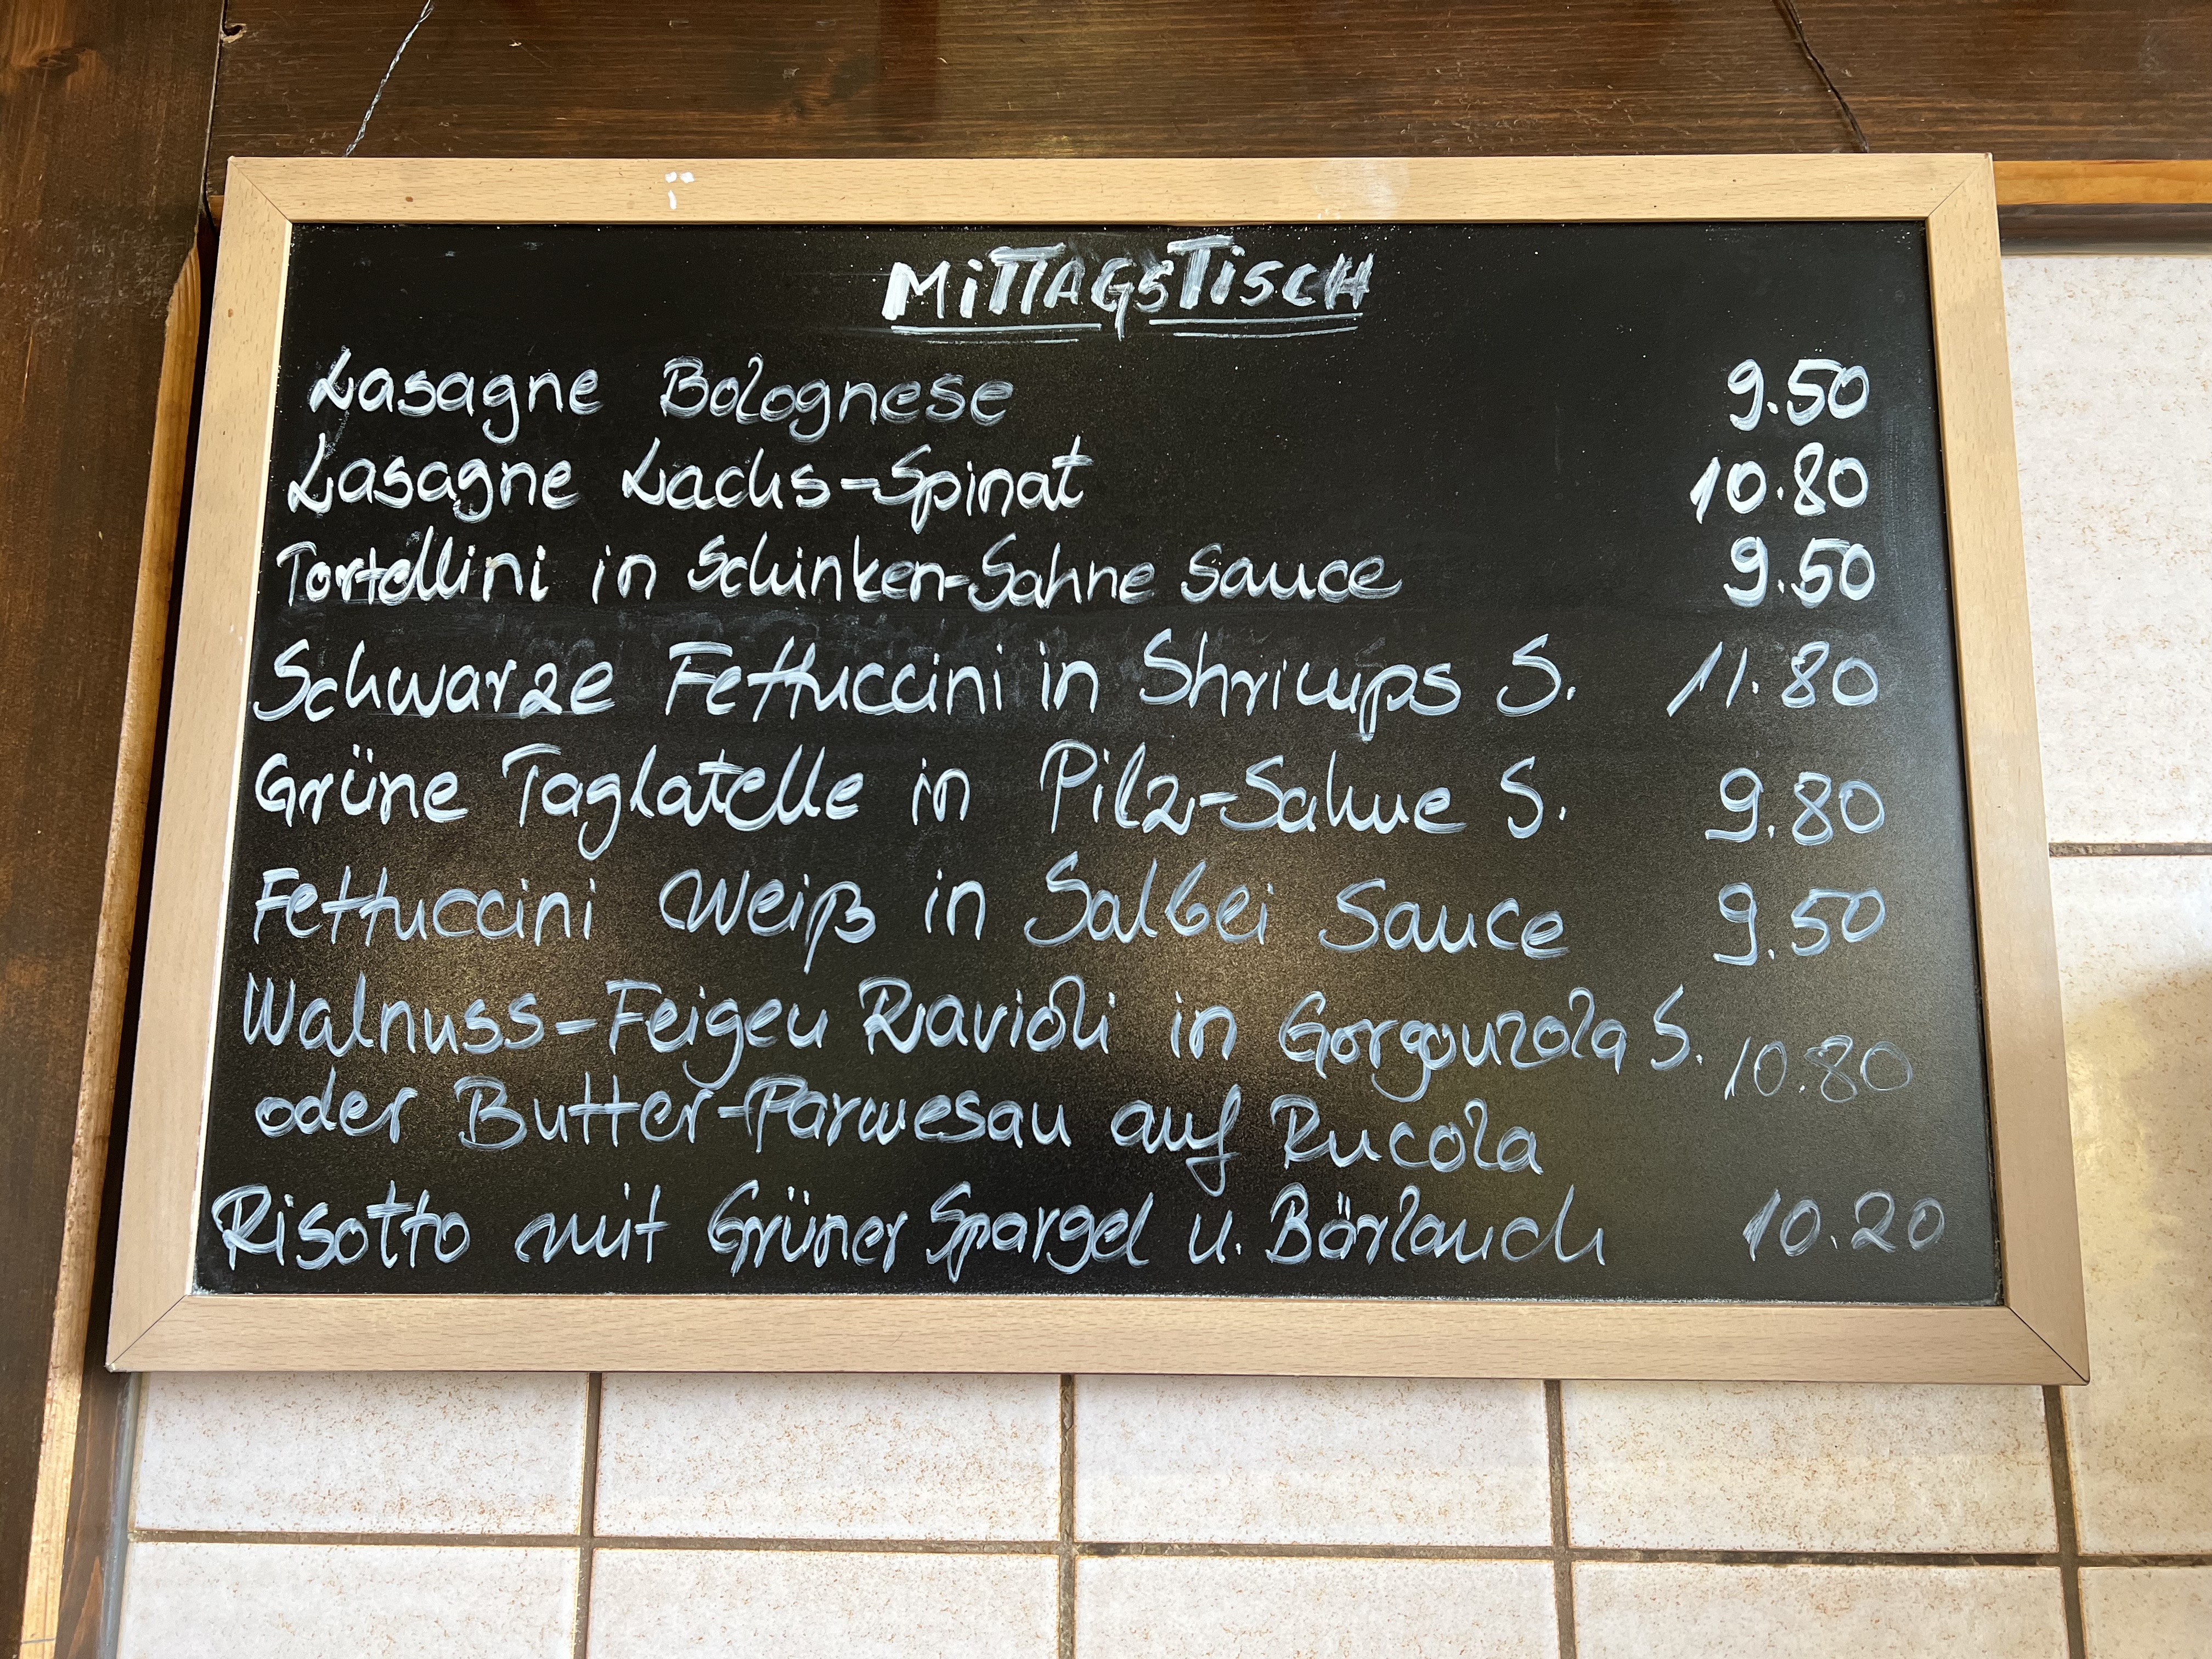 MiTTAGSTiSCH
Lasagne Bolognese 9.50
Lasagne Lachs-Spinat 10.80
Tortellini in Schinken-Sahne Sauce 9.50
Schwarze Fettuccini in Shrimps S. 11.80
Grüne Taglatelle in Pilz-Sahne S. 9.80
Fettuccini Weiß in Salbei Sauce 9.50
Walnuss-Feigen Ravioli in Gorgonzola S. 10.80
oder Butter-Parmesan auf Rucola
Risotto mit Grüner Spargel u. Börlauch 10.20